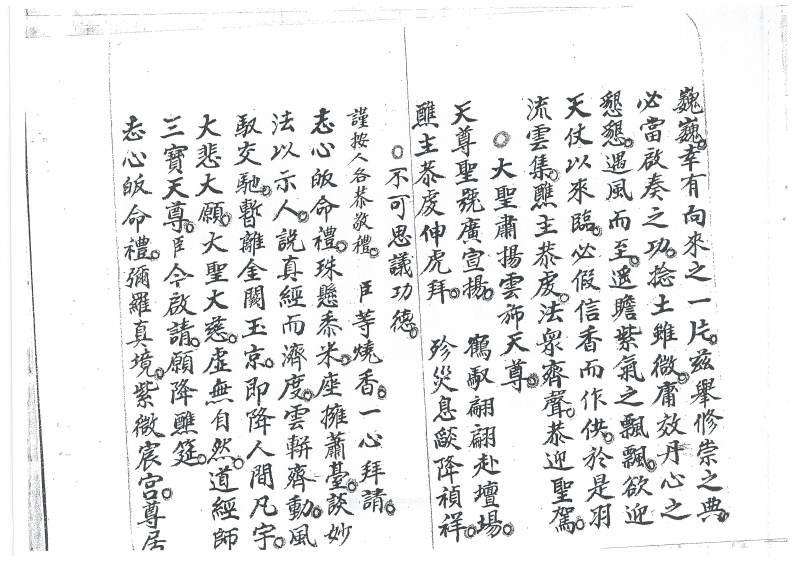 巍巍。幸有向來之一片。茲舉修崇之典。
必當啟奏之功。捻土雖微。庸效丹心之
懇懇。遇風而至。遙瞻紫氣之飄飄。欲迎
天仗以來臨。必假信香而作供。於是羽
流雲集。醮主恭虔。法眾齊聲。恭迎聖駕。
○大聖肅揚雲旆天尊。
天尊聖號廣宣揚。 鶴馭翩翩赴壇場。
醮主恭虔伸虎拜。 殄災息燄降禎祥。
○不可思議功德。
謹按人各恭敬禮。 臣等燒香。一心拜請。
志心皈命禮。珠懸黍米。座擁蕭臺。談妙
法以示人。說真經而濟度。雲軿齊動。風
馭交馳。暫離金闕玉京。即降人間凡宇。
大悲大願。大聖大慈。虛無自然。道經師
三寶天尊。臣今啟請。願降醮筵。
志心皈命禮。彌羅真境。紫微宸宮。尊居